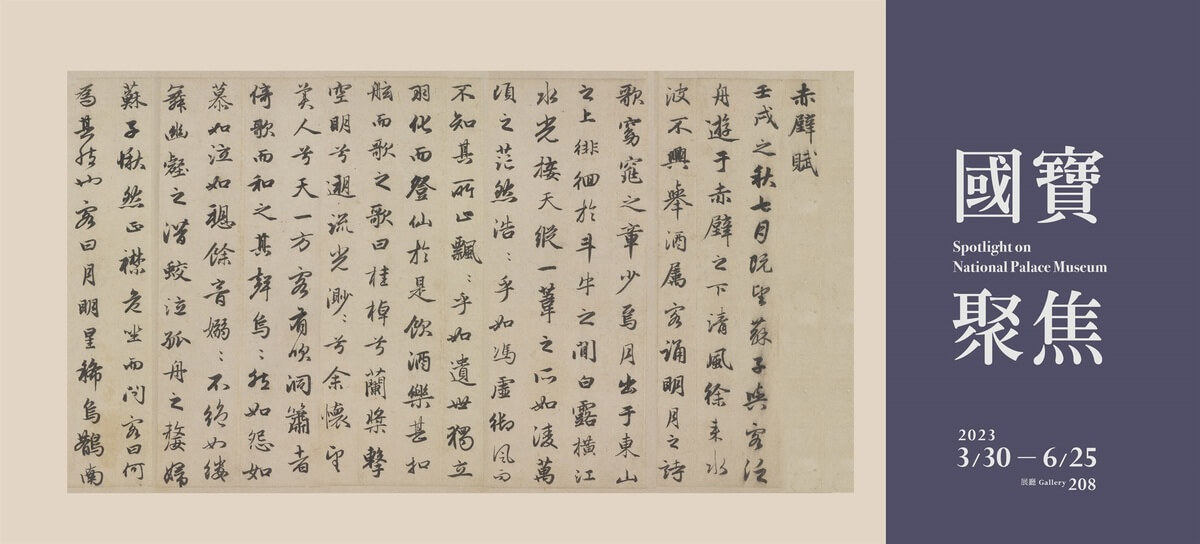 赤壁賦
壬戌之秋七月既望蘇子與客泛
舟遊于赤壁之下清風徐来水
波不興舉酒属客誦明月之詩
歌窈窕之章少焉月出于東山
之上徘徊於斗牛之間白露橫江
水光接天縱一葦之所如凌萬
頃之茫然浩〻乎如馮虛御風而
不知其所止飄〻乎如遺世獨立
羽化而登仙於是飲酒樂甚扣
舷而歌之歌曰桂棹兮蘭槳擊
空明兮遡流光渺〻兮余懷望
美人兮天一方客有吹洞簫者
倚歌而和之其聲烏〻然如怨如
慕如泣如聴餘音嫋〻不絕如縷
舞幽壑之潛蛟泣孤舟之嫠婦
蘇子愀然正襟危坐而问客曰何
為其然也客曰月明星稀烏鵲南
國寶
Spotlight on
National Palace Museum
聚焦
2023
3/30 — 6/25
展廳 Gallery 208